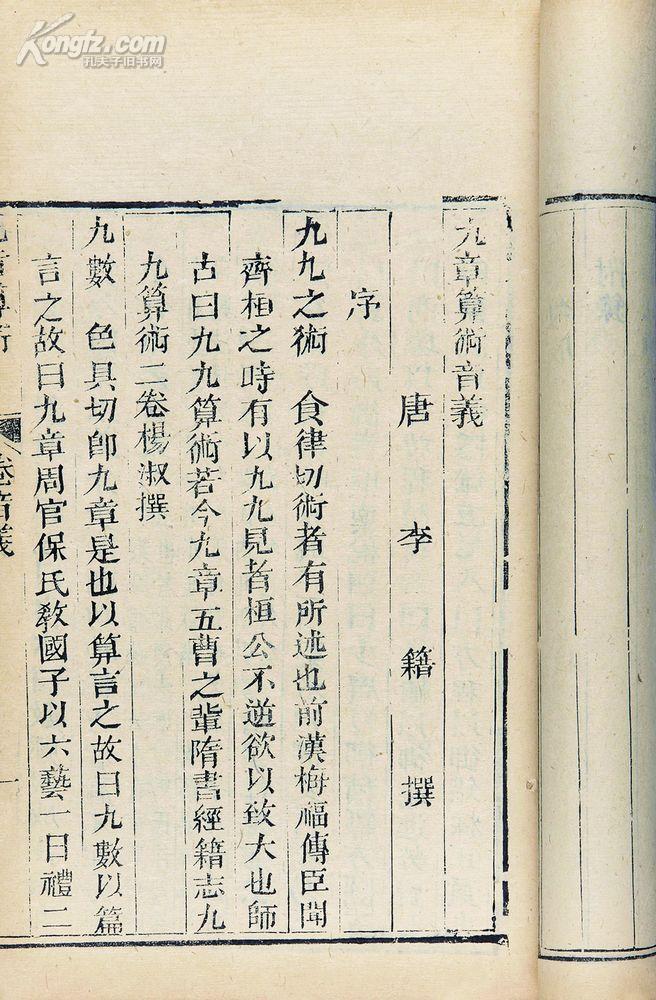 Kongfz.com
孔夫子旧书网
九章算術音義
唐李籍撰
序
九九之術 食律切術者有所述也前漢梅福傳臣聞
齊桓之時有以九九見者桓公不逆欲以致大也師
古曰九九算術若今九章五曹之輩隋書經籍志九
九算術二卷楊淑撰
九數 色具切卽九章是也以算言之故曰九數以篇
言之故曰九章周官保氏敎國子以六藝一曰禮二
九章算術 卷音義 一